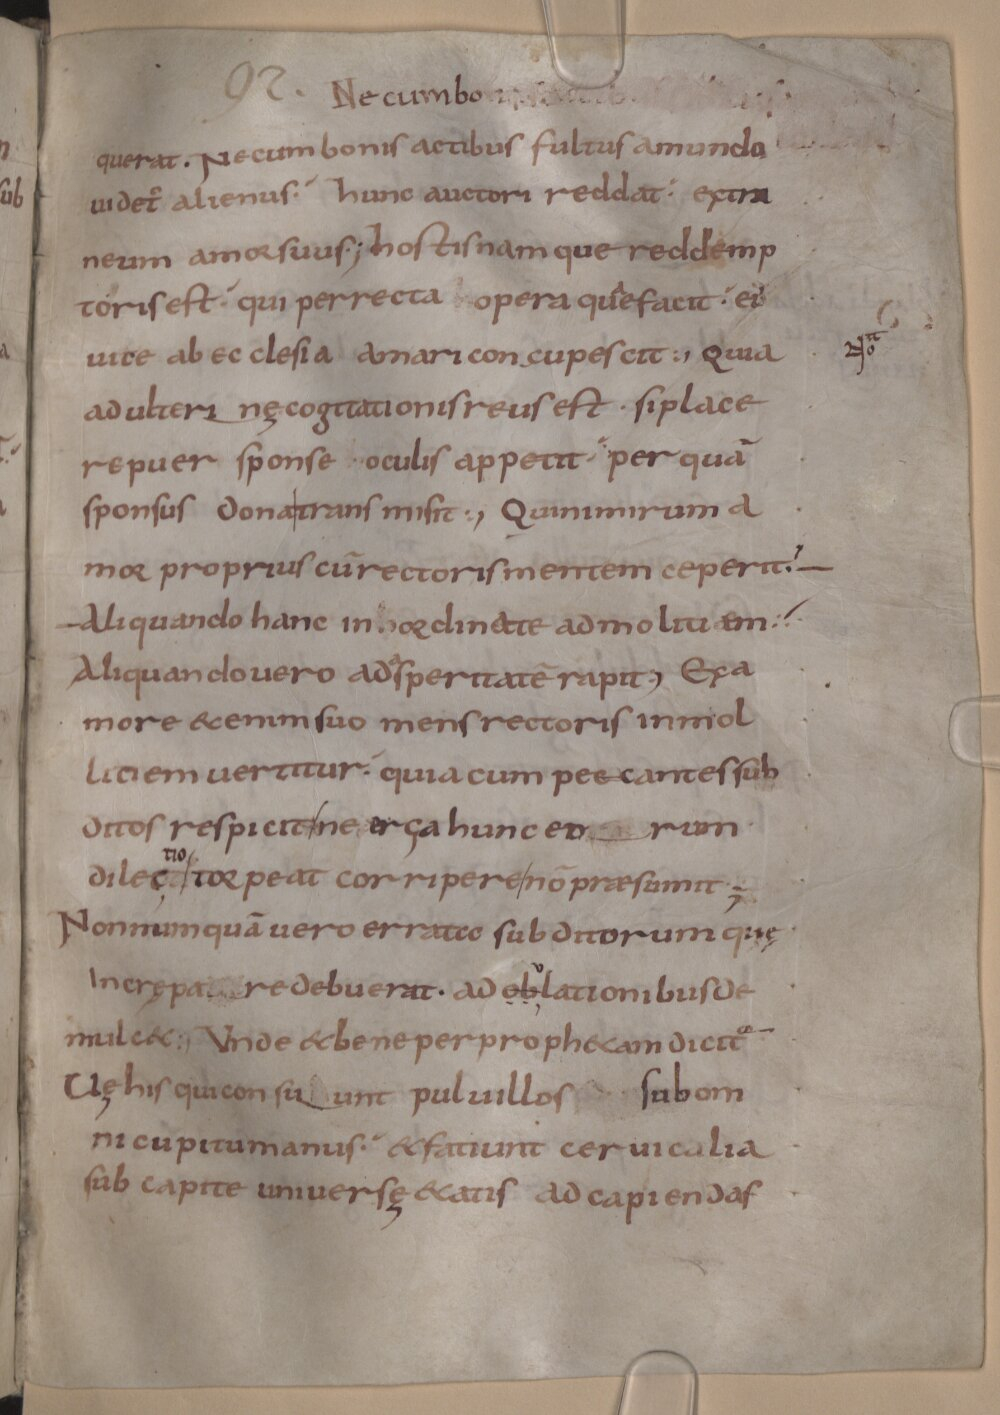 92.
Ne cum bo
querat. Ne cum bonis actibus fultus a mundo
uidet᷒ alienus. hunc auctori reddat extra
neum amor suus.; hostis namque reddemp
toris est. qui per recta opera quę facit. ei
uice ab ecclesia amari concupescit., Quia
adulteri nę cogitationis reus est. si place
re puer sponse oculis appetit per quā
sponsus dona transmisit., Qui nimirum a
mor proprius cū rectoris mentem ceperit.
Aliquando hanc inordinate ad molitiem.
Aliquando vero ad asperitatē rapit, Ex a
more & enim suo mens rectoris in mol
liciem uertitur. quia cum peccantes sub
ditos respicit ne erga hunc eorum
dilectio torpeat corripere nō præsumit;
Nonnumquā uero errata subditorum quę
increpare debuerat. adolationibus de
mulc&., Unde & bene per proph&am dicit᷒
Uę his qui consuunt puluillos sub om
ni cupitu manus. & fatiunt ceruicalia
sub capite uniuersę &atis ad capiendas